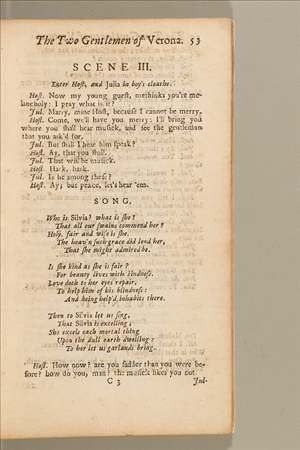 The Two Gentlemen of Verona. 53
SCENE III.
Enter Host, and Julia in boy's cloaths.
Host. Now my young guest, methinks you're me-
lancholy: I pray what is it?
Jul. Marry, mine Host, because I cannot be merry.
Host. Come, we'll have you merry: I'll bring you
where you shall hear musick, and see the gentleman
that you ask'd for.
Jul. But shall I hear him speak?
Host. Ay, that you shall.
Jul. That will be musick.
Host. Hark, hark.
Jul. Is he among these?
Host. Ay; but peace, let's hear 'em.
SONG.
Who is Silvia? what is she?
That all our swains commend her?
Holy, fair and wise is she,
The heav'n such grace did lend her,
That she might admired be.
Is she kind as she is fair?
For beauty lives with kindness.
Love doth to her eyes repair,
To help him of his blindness:
And being help'd inhabits there.
Then to Silvia let us sing,
That Silvia is excelling;
She excels each mortal thing
Upon the dull earth dwelling:
To her let us garlands bring.
Host. How now? are you sadder than you were be-
fore? how do you, man? the musick likes you not.
C 3 Jul-